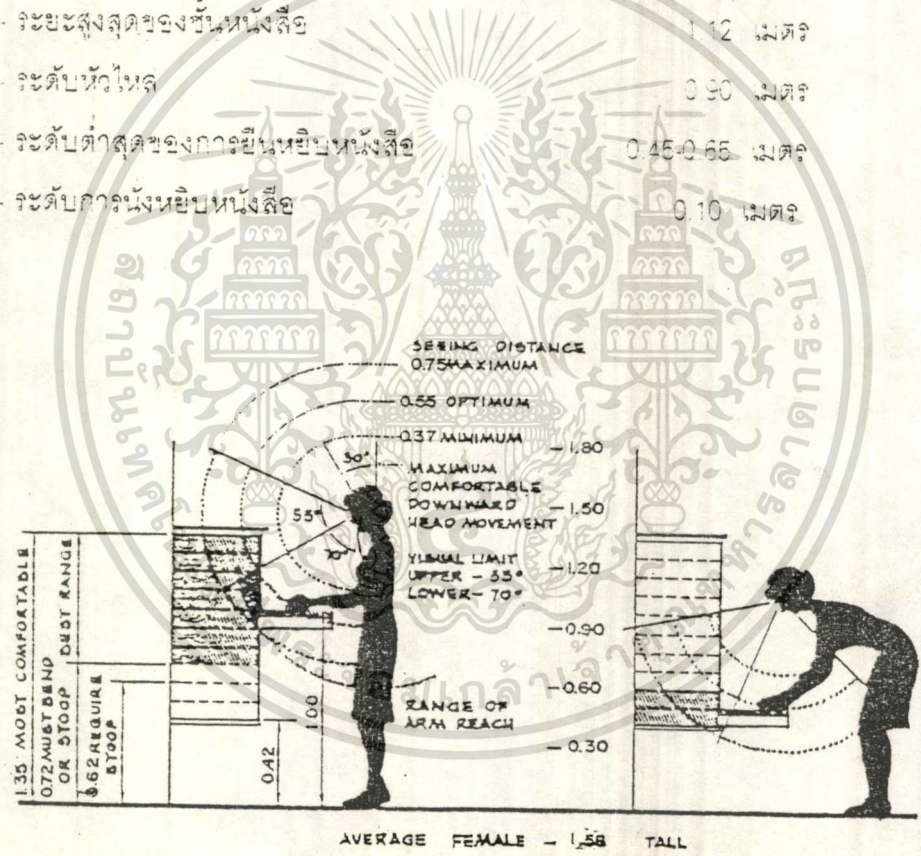 - ระยะสูงสุดของชั้นหนังสือ 1.12 เมตร
- ระดับหัวไหล่ 0.90 เมตร
- ระดับต่ำสุดของการยืนหยิบหนังสือ 0.45-0.65 เมตร
- ระดับการนั่งหยิบหนังสือ 0.10 เมตร
SEEING DISTANCE
0.75 MAXIMUM
0.55 OPTIMUM
0.37 MINIMUM
30°
MAXIMUM
COMFORTABLE
DOWNWARD
HEAD MOVEMENT
55°
70°
VISUAL LIMIT
UPPER - 55°
LOWER - 70°
RANGE OF
ARM REACH
- 1.80
- 1.50
- 1.20
- 0.90
- 0.60
- 0.30
1.35 MOST COMFORTABLE
0.72 MUST BEND
OR STOOP
BEST RANGE
0.62 REQUIRE
STOOP
0.42
1.00
AVERAGE FEMALE - 1.58 TALL
สถาบันเทคโนโลยีพระจอมเกล้าเจ้าคุณทหารลาดกระบัง